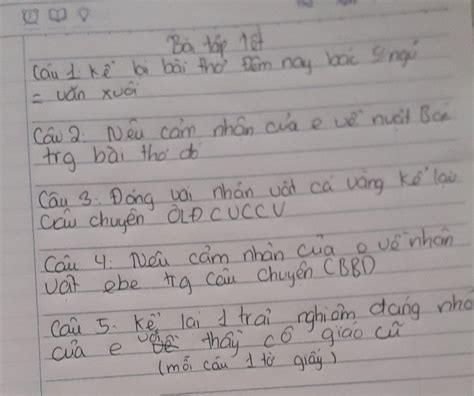 Bài tập Tết
Câu 1: Kể lại bài thơ Đêm nay bác 0 ngủ
= văn xuôi
Câu 2: Nêu cảm nhận của e về người Bác
trg bài thơ đó
Câu 3: Đóng vai nhân vật cá vàng kể lại
câu chuyện OLĐCVCCV
Câu 4: Nêu cảm nhận của e về nhân
vật ebe trg câu chuyện CBBD
Câu 5: Kể lại 1 trải nghiệm đáng nhớ
của e với thầy cô giáo cũ
(mỗi câu 1 tờ giấy)